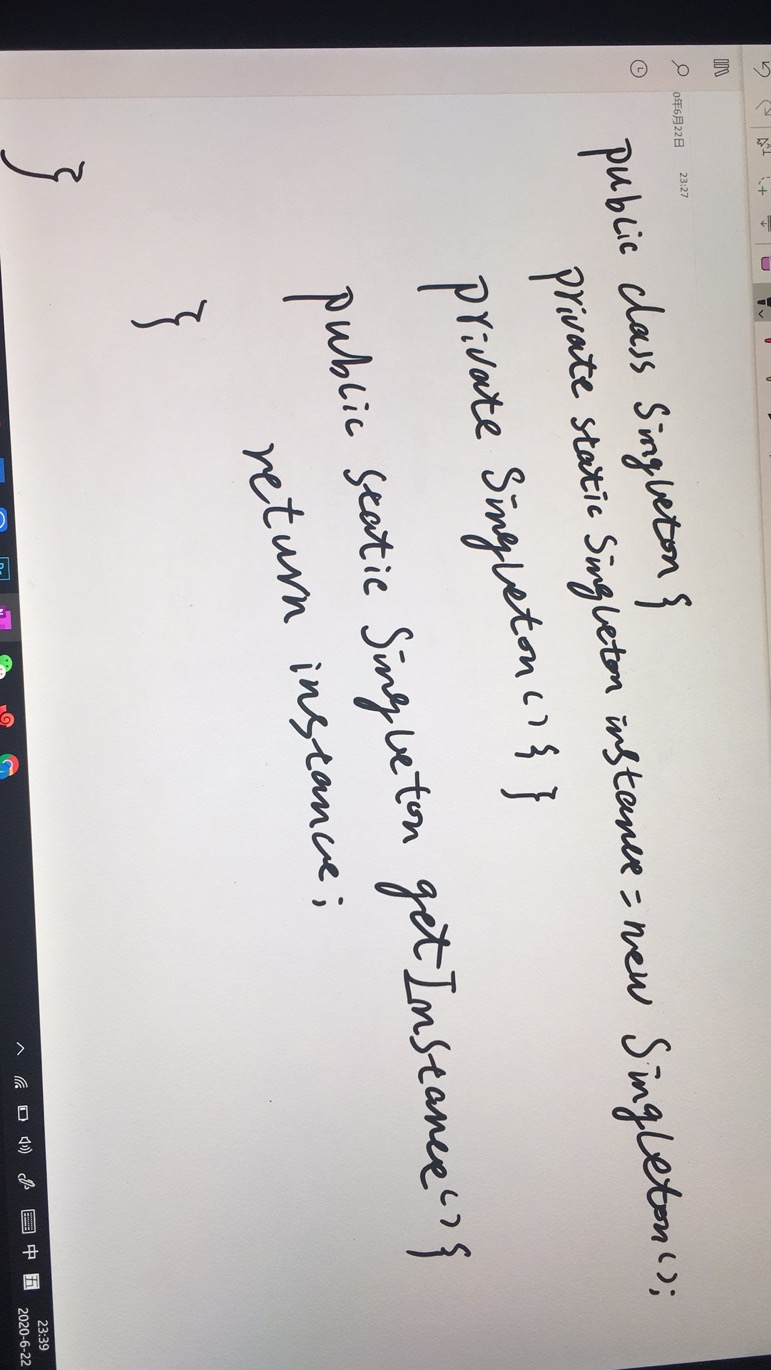 0年6月22日 23:27
public class Singleton {
private static Singleton instance = new Singleton();
private Singleton() { }
public static Singleton getInstance() {
return instance;
}
}
中
23:39
2020-6-22